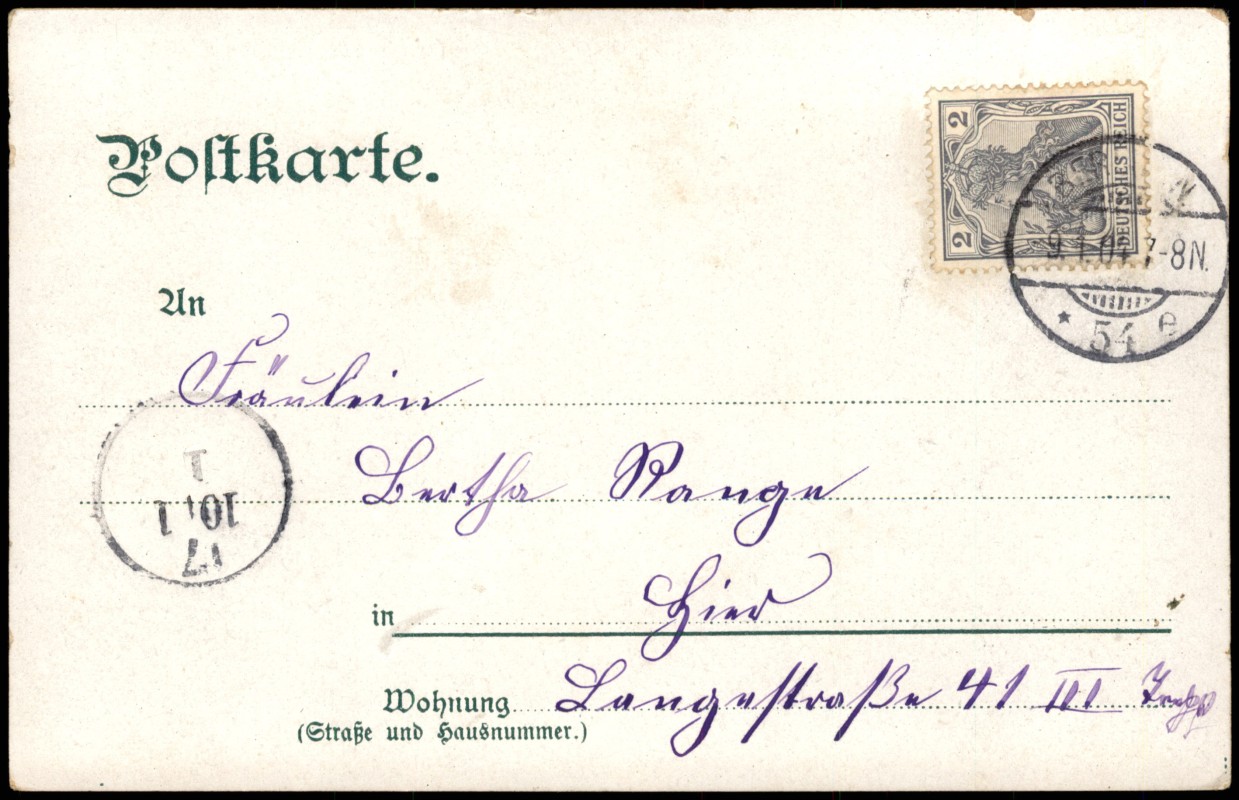 Postkarte.
2 DEUTSCHES REICH 2
9.1.04 7-8N.
* 54 e
An
Fräulein
Bertha Range
in Hier
Wohnung Langestraße 41 III
(Straße und Hausnummer.)
1
10.1